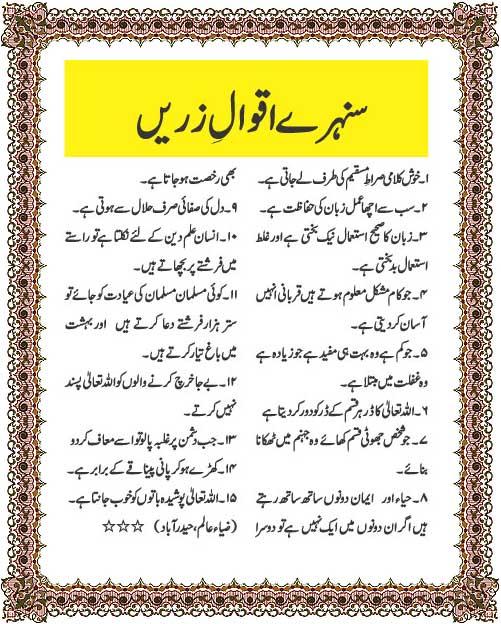 سنہرے اقوالِ زریں
۱۔ خوش کلامی صراطِ مستقیم کی طرف لے جاتی ہے۔
۲۔ سب سے اچھا عمل زبان کی حفاظت ہے۔
۳۔ زبان کا صحیح استعمال نیک بختی ہے اور غلط
استعمال بدبختی ہے۔
۴۔ جو کام مشکل معلوم ہوتے ہیں قربانی انہیں
آسان کر دیتی ہے۔
۵۔ جو کم ہے وہ بہت ہی مفید ہے جو زیادہ ہے
وہ غفلت میں مبتلا ہے۔
۶۔ اللہ تعالیٰ کا ڈر ہر قسم کے ڈر کو دور کر دیتا ہے
۷۔ جو شخص جھوٹی قسم کھائے وہ جہنم میں ٹھکانا
بنائے۔
۸۔ حیاء اور ایمان دونوں ساتھ ساتھ رہتے
ہیں اگر ان دونوں میں ایک نہیں ہے تو دوسرا
بھی رخصت ہو جاتا ہے۔
۹۔ دل کی صفائی صرف حلال سے ہوتی ہے۔
۱۰۔ انسان علم دین کے لئے نکلتا ہے تو راستے
میں فرشتے پر بچھاتے ہیں۔
۱۱۔ کوئی مسلمان مسلمان کی عیادت کو جائے تو
ستر ہزار فرشتے دعا کرتے ہیں اور بہشت
میں باغ تیار کرتے ہیں۔
۱۲۔ بے جا خرچ کرنے والوں کو اللہ تعالیٰ پسند
نہیں کرتے۔
۱۳۔ جب دشمن پر غلبہ پالو تو اسے معاف کر دو
۱۴۔ کھڑے ہو کر پانی پینا قے کے برابر ہے۔
۱۵۔ اللہ تعالیٰ پوشیدہ باتوں کو خوب جانتا ہے۔
(ضیاء عالم، حیدرآباد) ☆☆☆